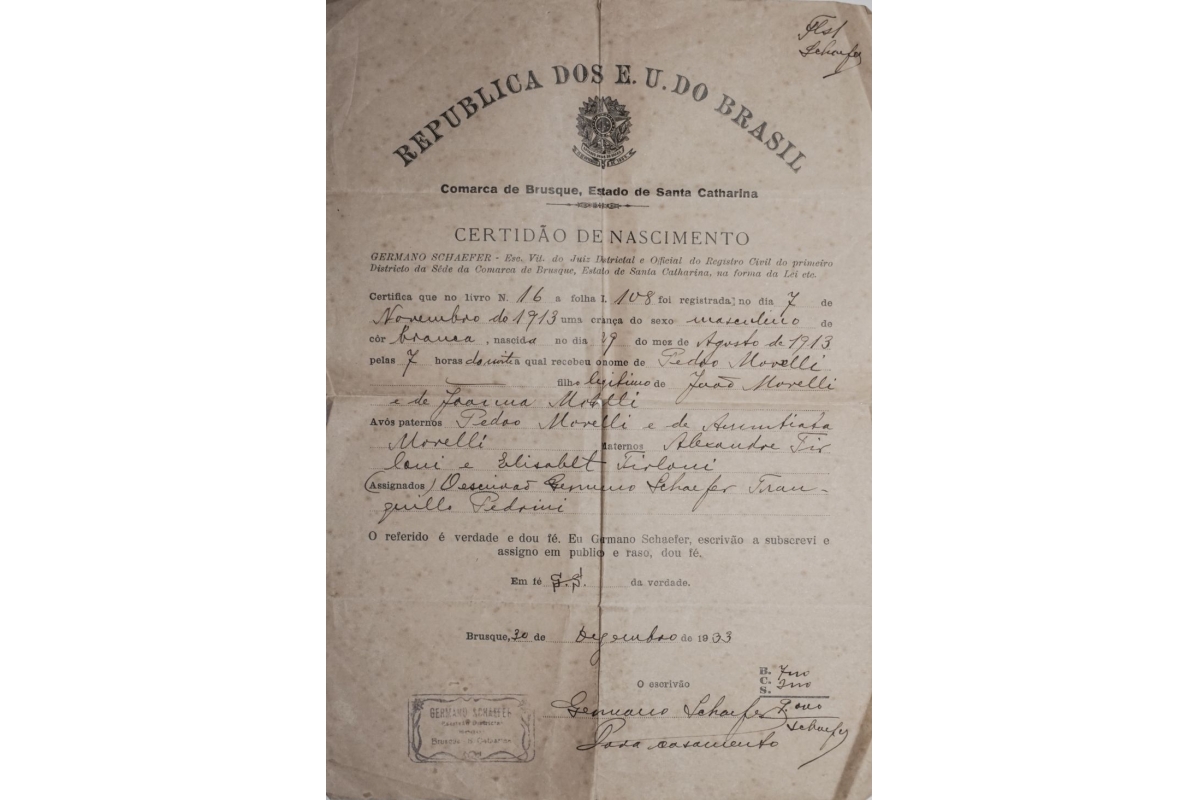 Schaefer
REPUBLICA DOS E. U. DO BRASIL
Comarca de Brusque, Estado de Santa Catharina
CERTIDÃO DE NASCIMENTO
GERMANO SCHAEFER - Esc. Vit. do Juiz Districtal e Official do Registro Civil do primeiro
Districto da Séde da Comarca de Brusque, Estado de Santa Catharina, na forma da Lei etc.
Certifica que no livro N. 16 a folha 108 foi registrada, no dia 7 de
Novembro de 1913 uma criança do sexo masculino de
côr branca, nascida no dia 29 do mez de Agosto de 1913
pelas 7 horas da noite a qual recebeu o nome de Pedro Morelli
filho legitimo de João Morelli
e de Joanna Morelli
Avós paternos Pedro Morelli e de Annuntiata
Morelli maternos Alexandre Tir
loni e Elisabet Tirloni
(Assignados) O escrivão Germano Schaefer Tran-
quillo Pedrini
O referido é verdade e dou fé. Eu Germano Schaefer, escrivão a subscrevi e
assigno em publico e raso, dou fé.
Em fé G.S. da verdade.
Brusque, 30 de Dezembro de 1933
B. 7
C. 2
S.
O escrivão
Germano Schaefer
Schaefer
Para casamento
GERMANO SCHAEFER
Brusque